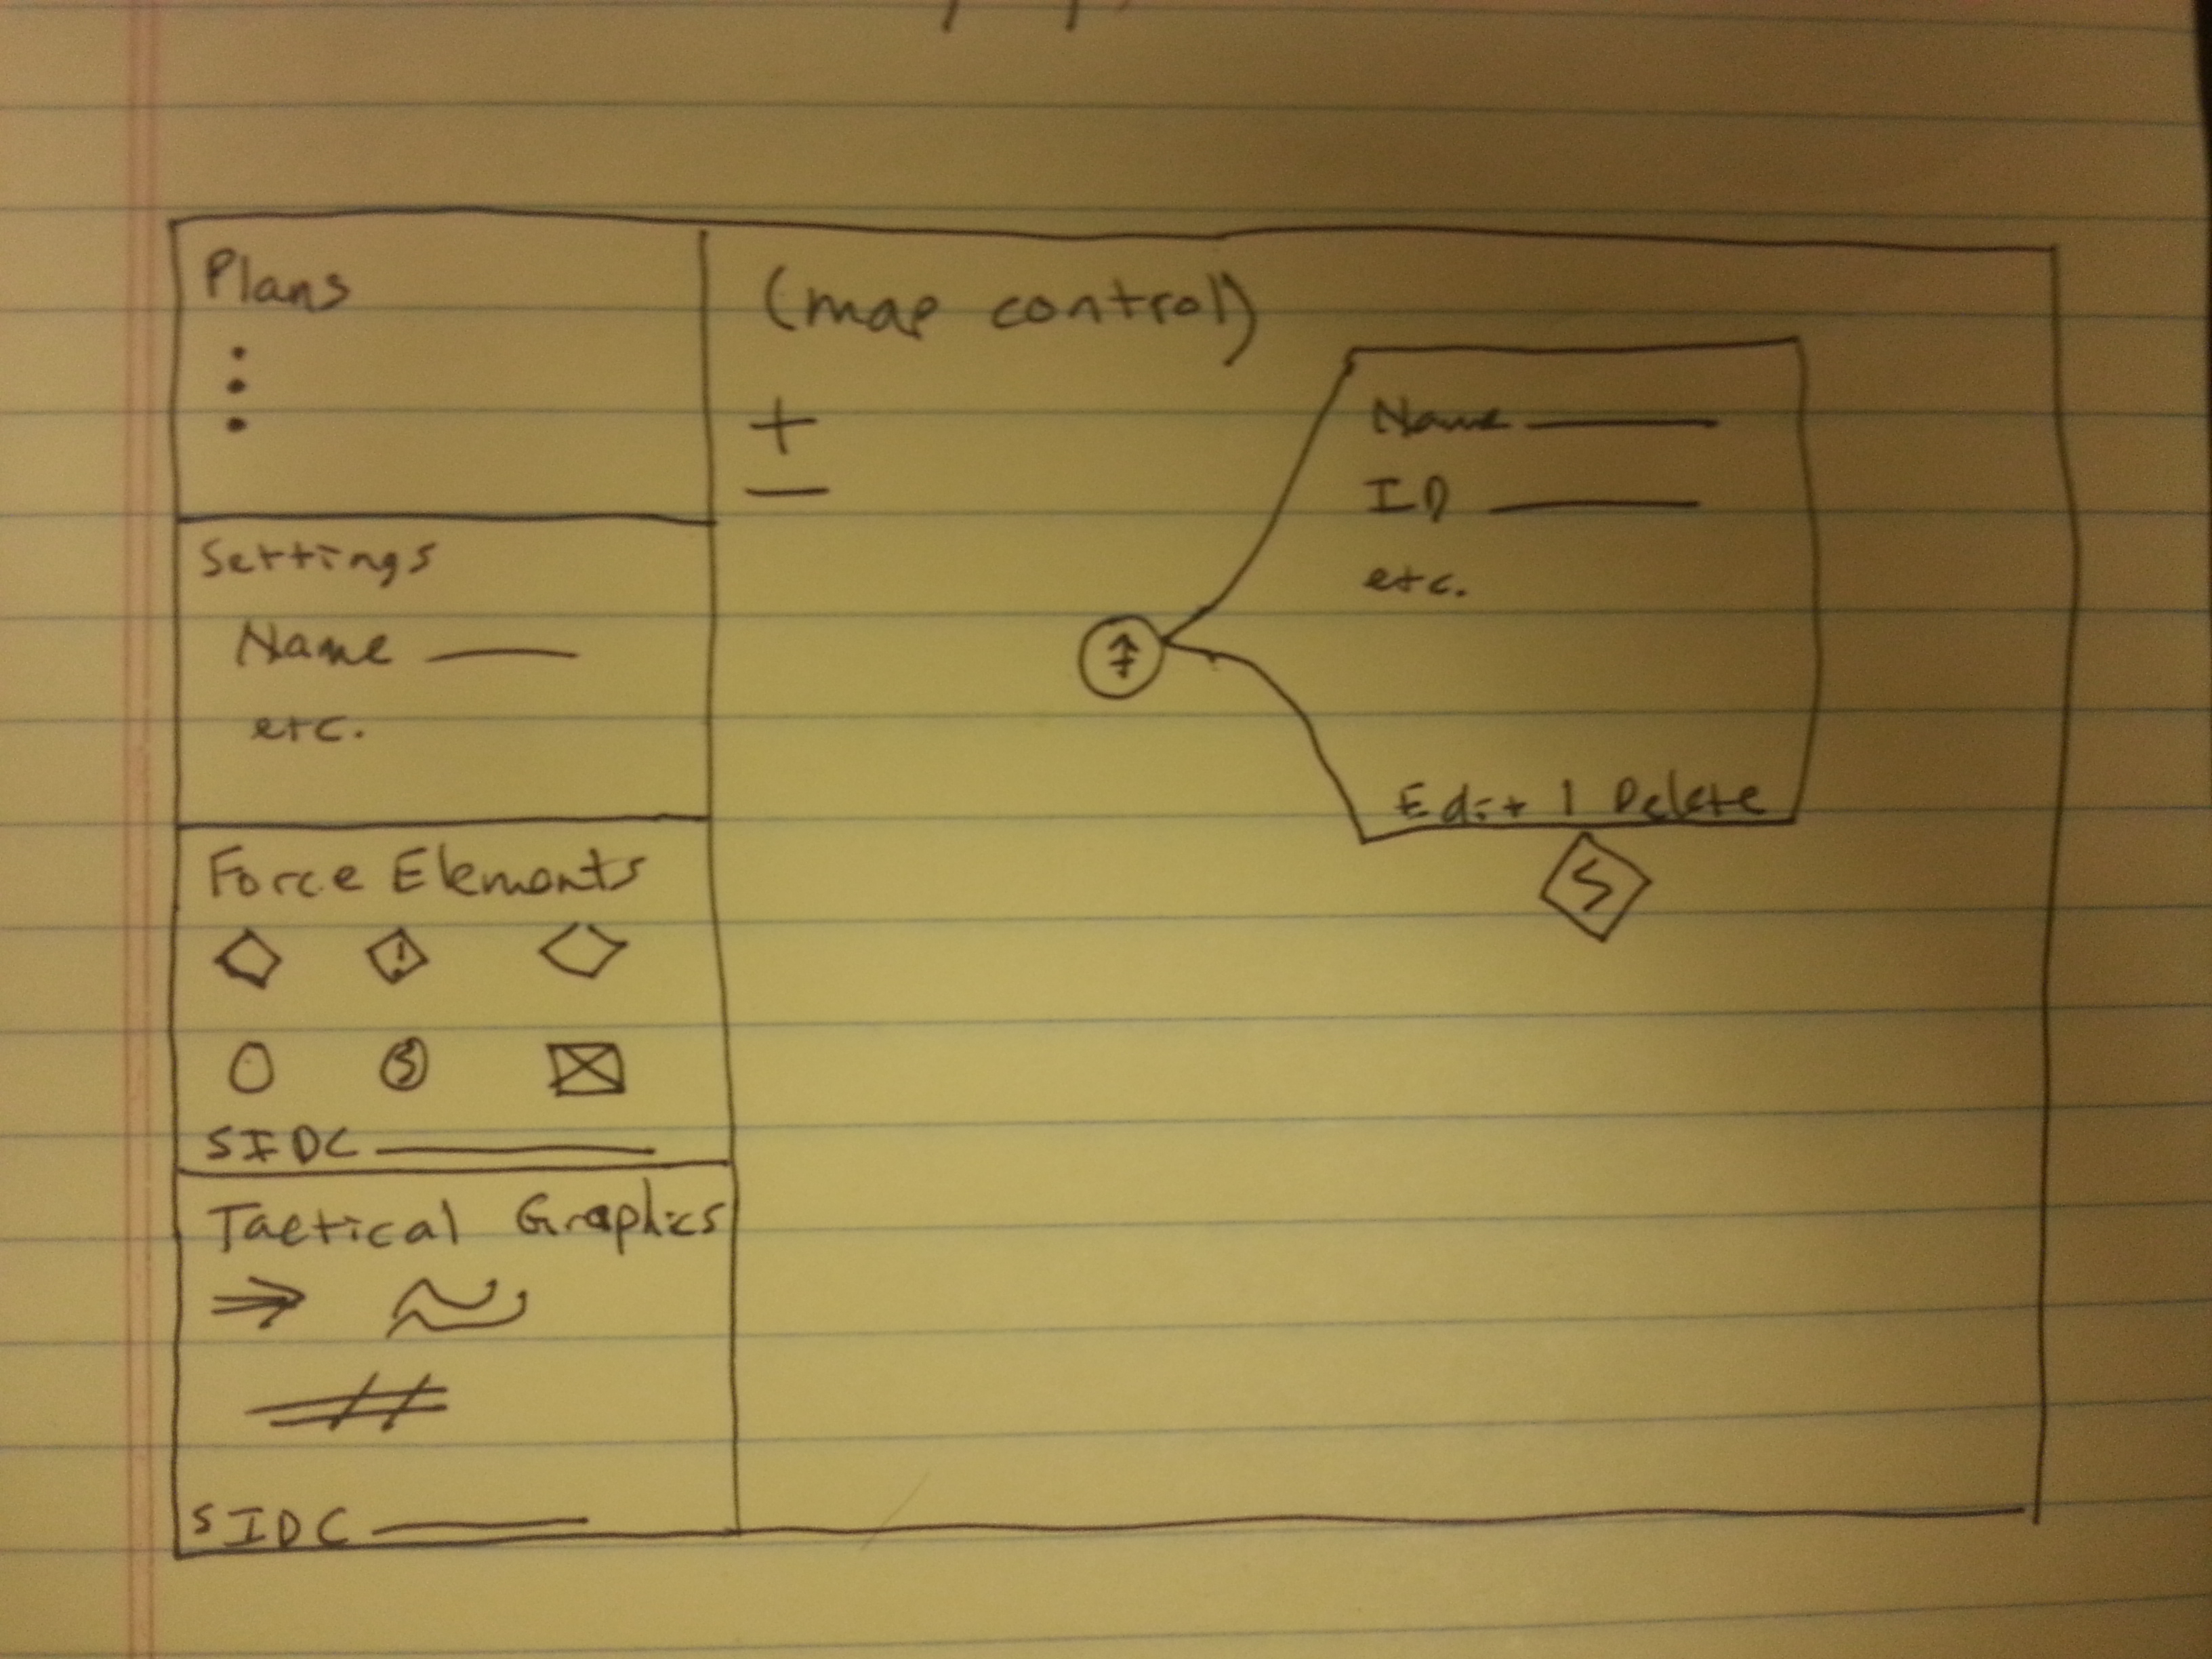 Plans
Settings
Name
etc.
Force Elements
SIDC
Tactical Graphics
SIDC
(map control)
+
−
Name
ID
etc.
Edit | Delete
S